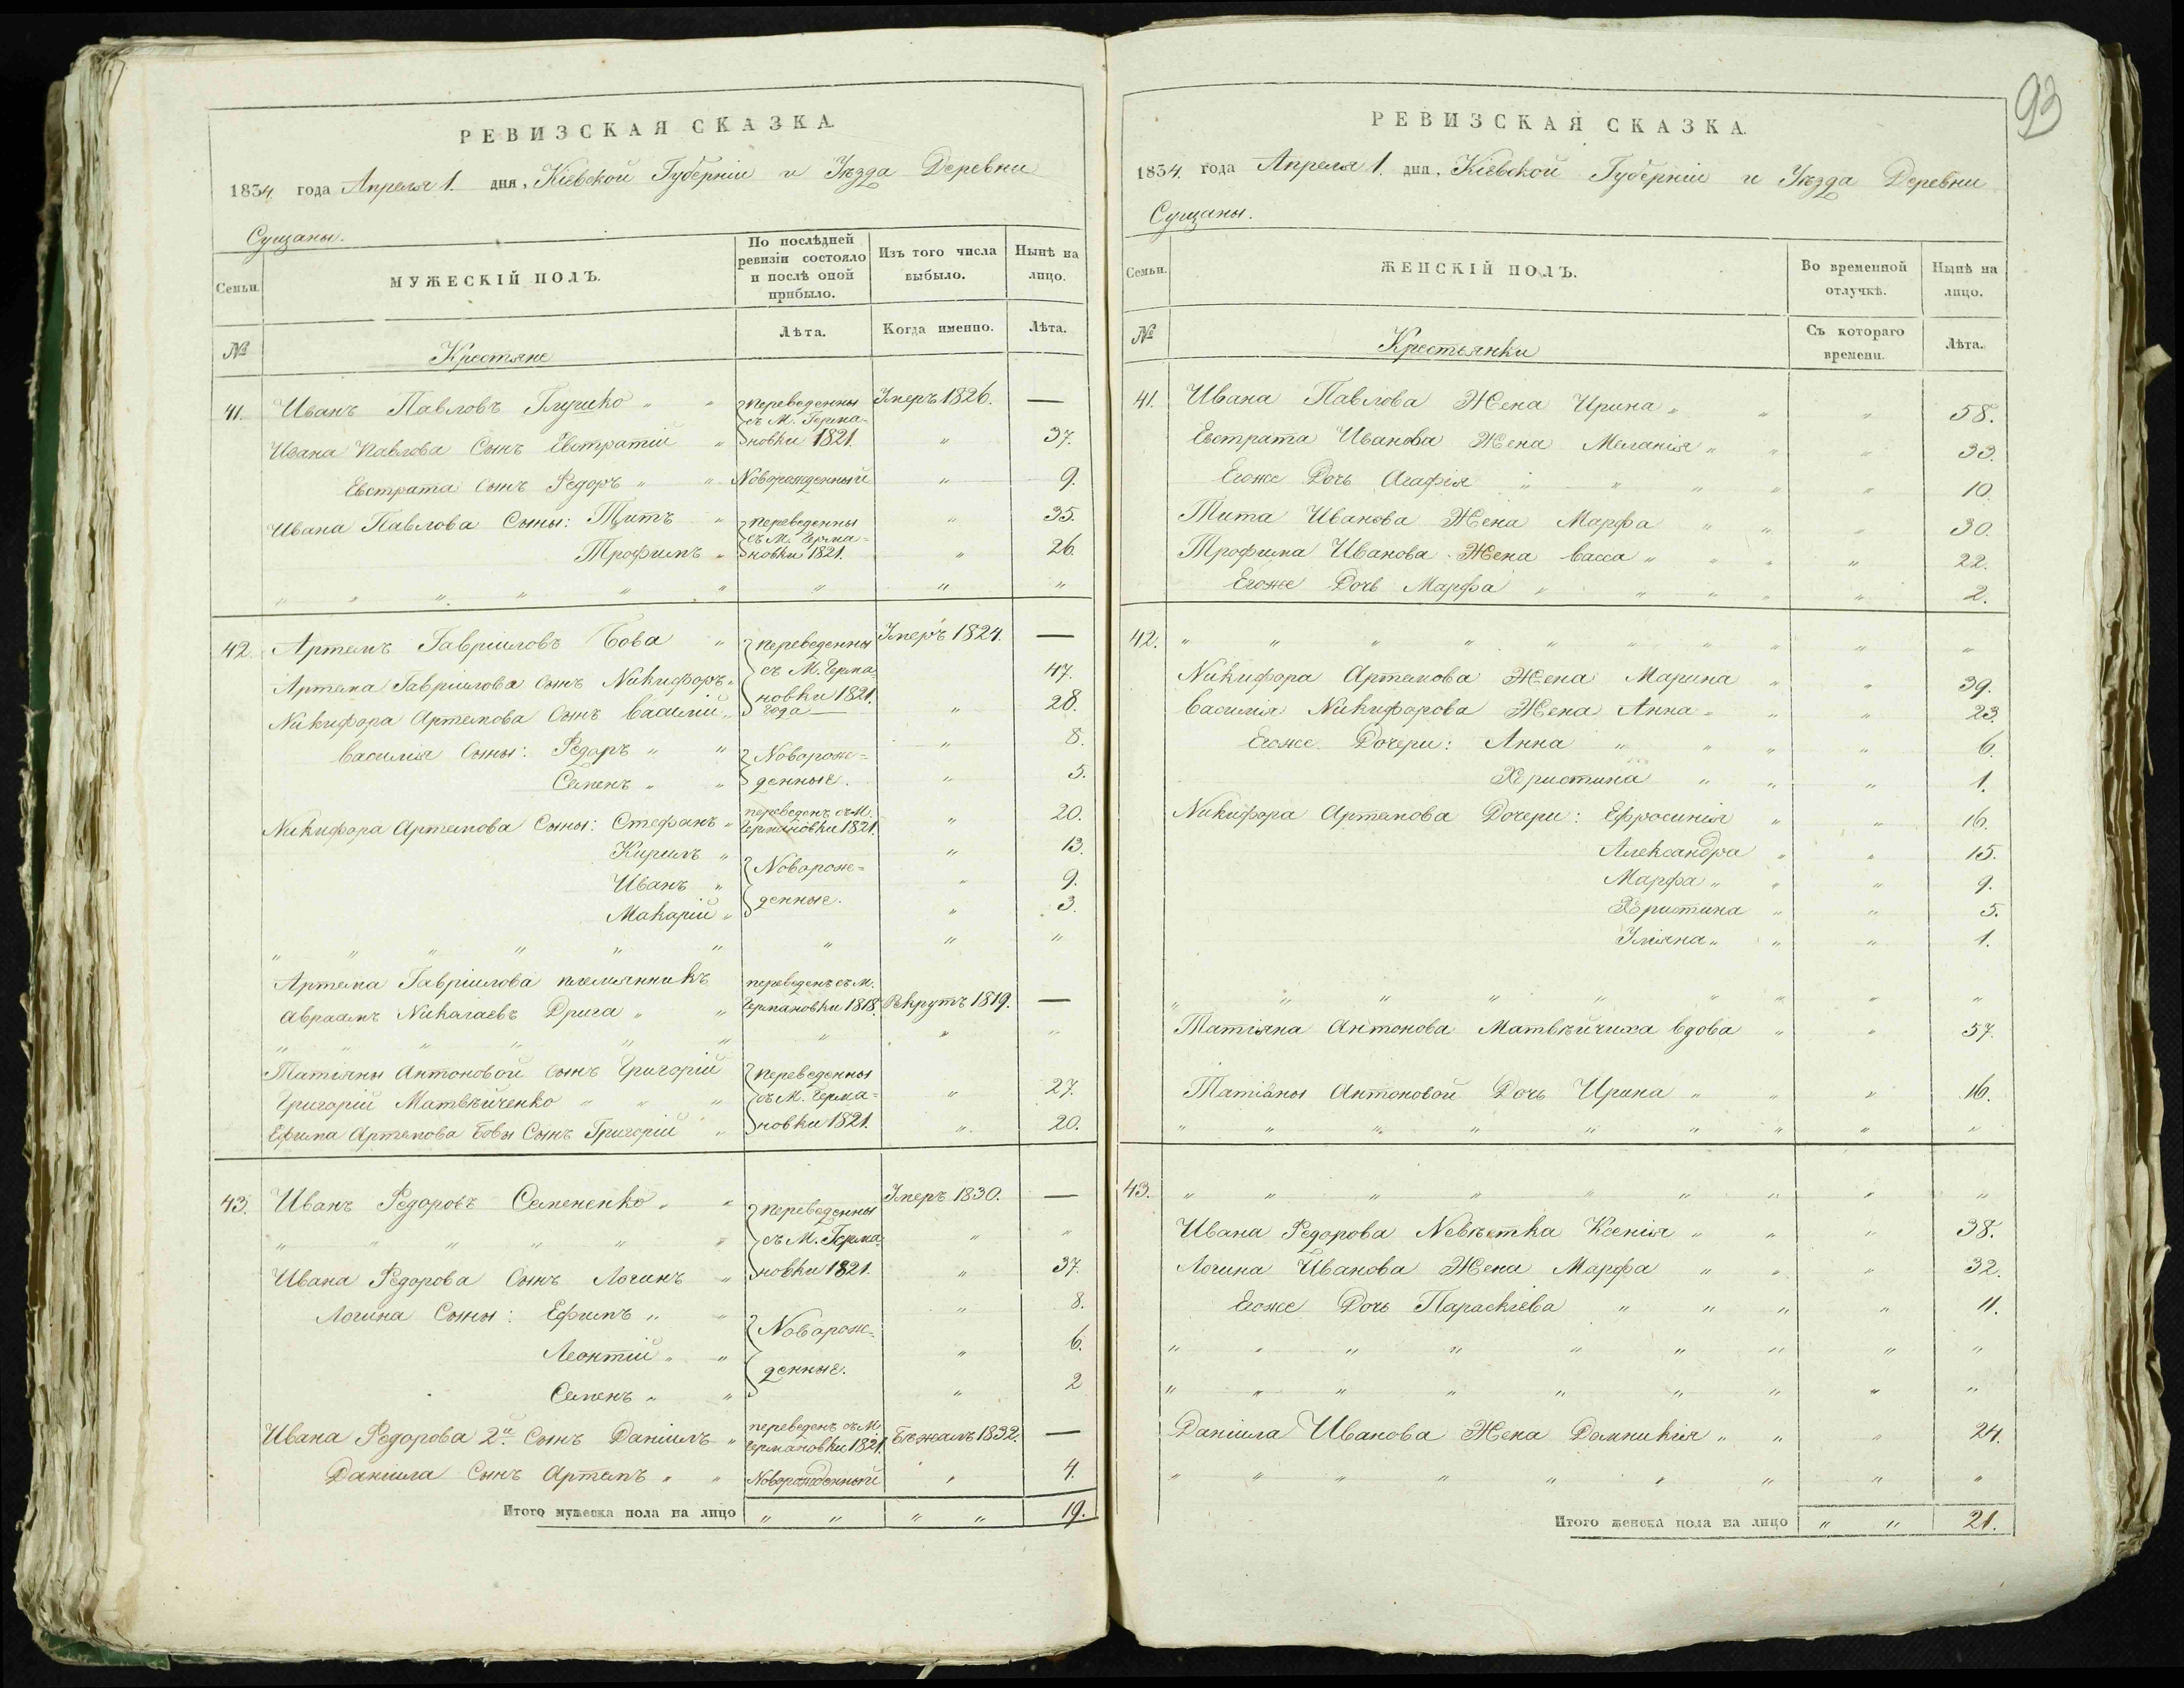 РЕВИЗСКАЯ СКАЗКА
1834 года Апреля 1. дня, Кіевской Губерніи и Уѣзда Деревни
Сущаны.
Семьи.
МУЖЕСКІЙ ПОЛЪ.
По послѣдней ревизіи состояло и послѣ оной прибыло.
Изъ того числа выбыло.
Нынѣ на лицо.
№
Крестяне
Лѣта.
Когда именно.
Лѣта.
41. Иванъ Павловъ Глушко " " переведенны Умеръ 1826. —
съ М. Герма=
Ивана Павлова Сынъ Евстратій " новки 1821. " 37.
Евстрата сынъ Федоръ " " Новорожденный " 9.
Ивана Павлова Сыны: Титъ " переведенны " 35.
съ М. Герма=
Трофимъ " новки 1821. " 26.
" " " " " " " " "
42. Артемъ Гавріиловъ Бова " переведенны Умеръ 1824. —
Артема Гавріилова сынъ Никифоръ " съ М. Герма= 47.
Никифора Артемова сынъ Василій " новки 1821. года " 28.
Василія Сыны: Федоръ " " Новорож= " 8.
Семенъ " " денные. " 5.
Никифора Артемова Сыны: Стефанъ " переведенъ съ М. Германовки 1821. " 20.
Кирилъ " " 13.
Иванъ " Новорож= " 9.
Макарій " денные. " 3.
" " " " " " " " "
Артема Гавріилова племянникъ переведенъ съ М.
Авраамъ Николаевъ Дрига " " Германовки 1818. Рекрутъ 1819. —
" " " " " " " " "
Татіяны Антоновой сынъ Григорій переведенны
Григорій Матвѣйченко " " " съ М. Герма= " 27.
Ефима Артемова Бовы Сынъ Григорій " новки 1821. " 20.
43. Иванъ Федоровъ Семененко " " переведенны Умеръ 1830. —
" " " " " " съ М. Герма= " "
Ивана Федорова Сынъ Логинъ " новки 1821. " 37.
Логина Сыны: Ефимъ " " " 8.
Леонтій " " Новорож= " 6.
Семенъ " " денные. " 2
Ивана Федорова 2й. Сынъ Даніилъ " переведенъ съ М. Германовки 1821. Бѣжалъ 1832. —
Даніила Сынъ Артемъ " " Новорожденный " 4.
Итого мужеска пола на лицо " " " " 19.
93
РЕВИЗСКАЯ СКАЗКА.
1834. года Апреля 1. дня, Кіевской Губерніи и Уѣзда Деревни
Сущаны.
Семьи.
ЖЕНСКІЙ ПОЛЪ.
Во временной отлучкѣ.
Нынѣ на лицо.
№
Крестьянки
Съ котораго времени.
Лѣта.
41. Ивана Павлова Жена Ирина " " " 58.
Евстрата Иванова Жена Меланія " " " 33.
Егоже Дочь Агафія " " " " " 10.
Тита Иванова Жена Марфа " " " 30.
Трофима Иванова Жена Васса " " " " 22.
Егоже Дочь Марфа " " " " " 2.
42. " " " " " " " " " "
Никифора Артемова Жена Марина " " 39.
Василія Никифорова Жена Анна " " " 23.
Егоже Дочери: Анна " " " " 6.
Христина " " " 1.
Никифора Артемова Дочери: Ефросинія " " 16.
Александра " " 15.
Марфа " " " 9.
Христина " " 5.
Уліяна " " " 1.
" " " " " " " " "
Татіяна Антонова Матвѣйчиха вдова " " 57.
Татіаны Антоновой Дочь Ирина " " " 16.
" " " " " " " " "
43. " " " " " " " " "
Ивана Федорова Невѣстка Ксенія " " " 38.
Логина Иванова Жена Марфа " " " 32.
Егоже Дочь Параскіева " " " " 11.
" " " " " " " " "
" " " " " " " " "
Даніила Иванова Жена Домникія " " " 24.
" " " " " " " " "
Итого женска пола на лицо " " 21.